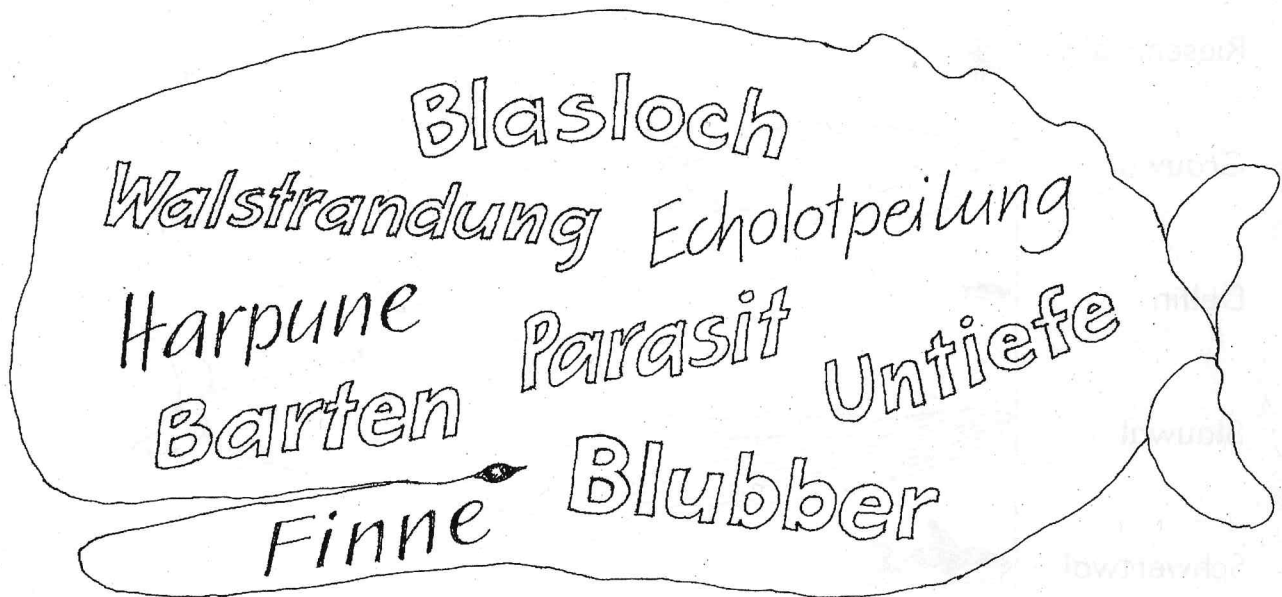 Blasloch
Walstrandung Echolotpeilung
Harpune Parasit Untiefe
Barten
Blubber
Finne